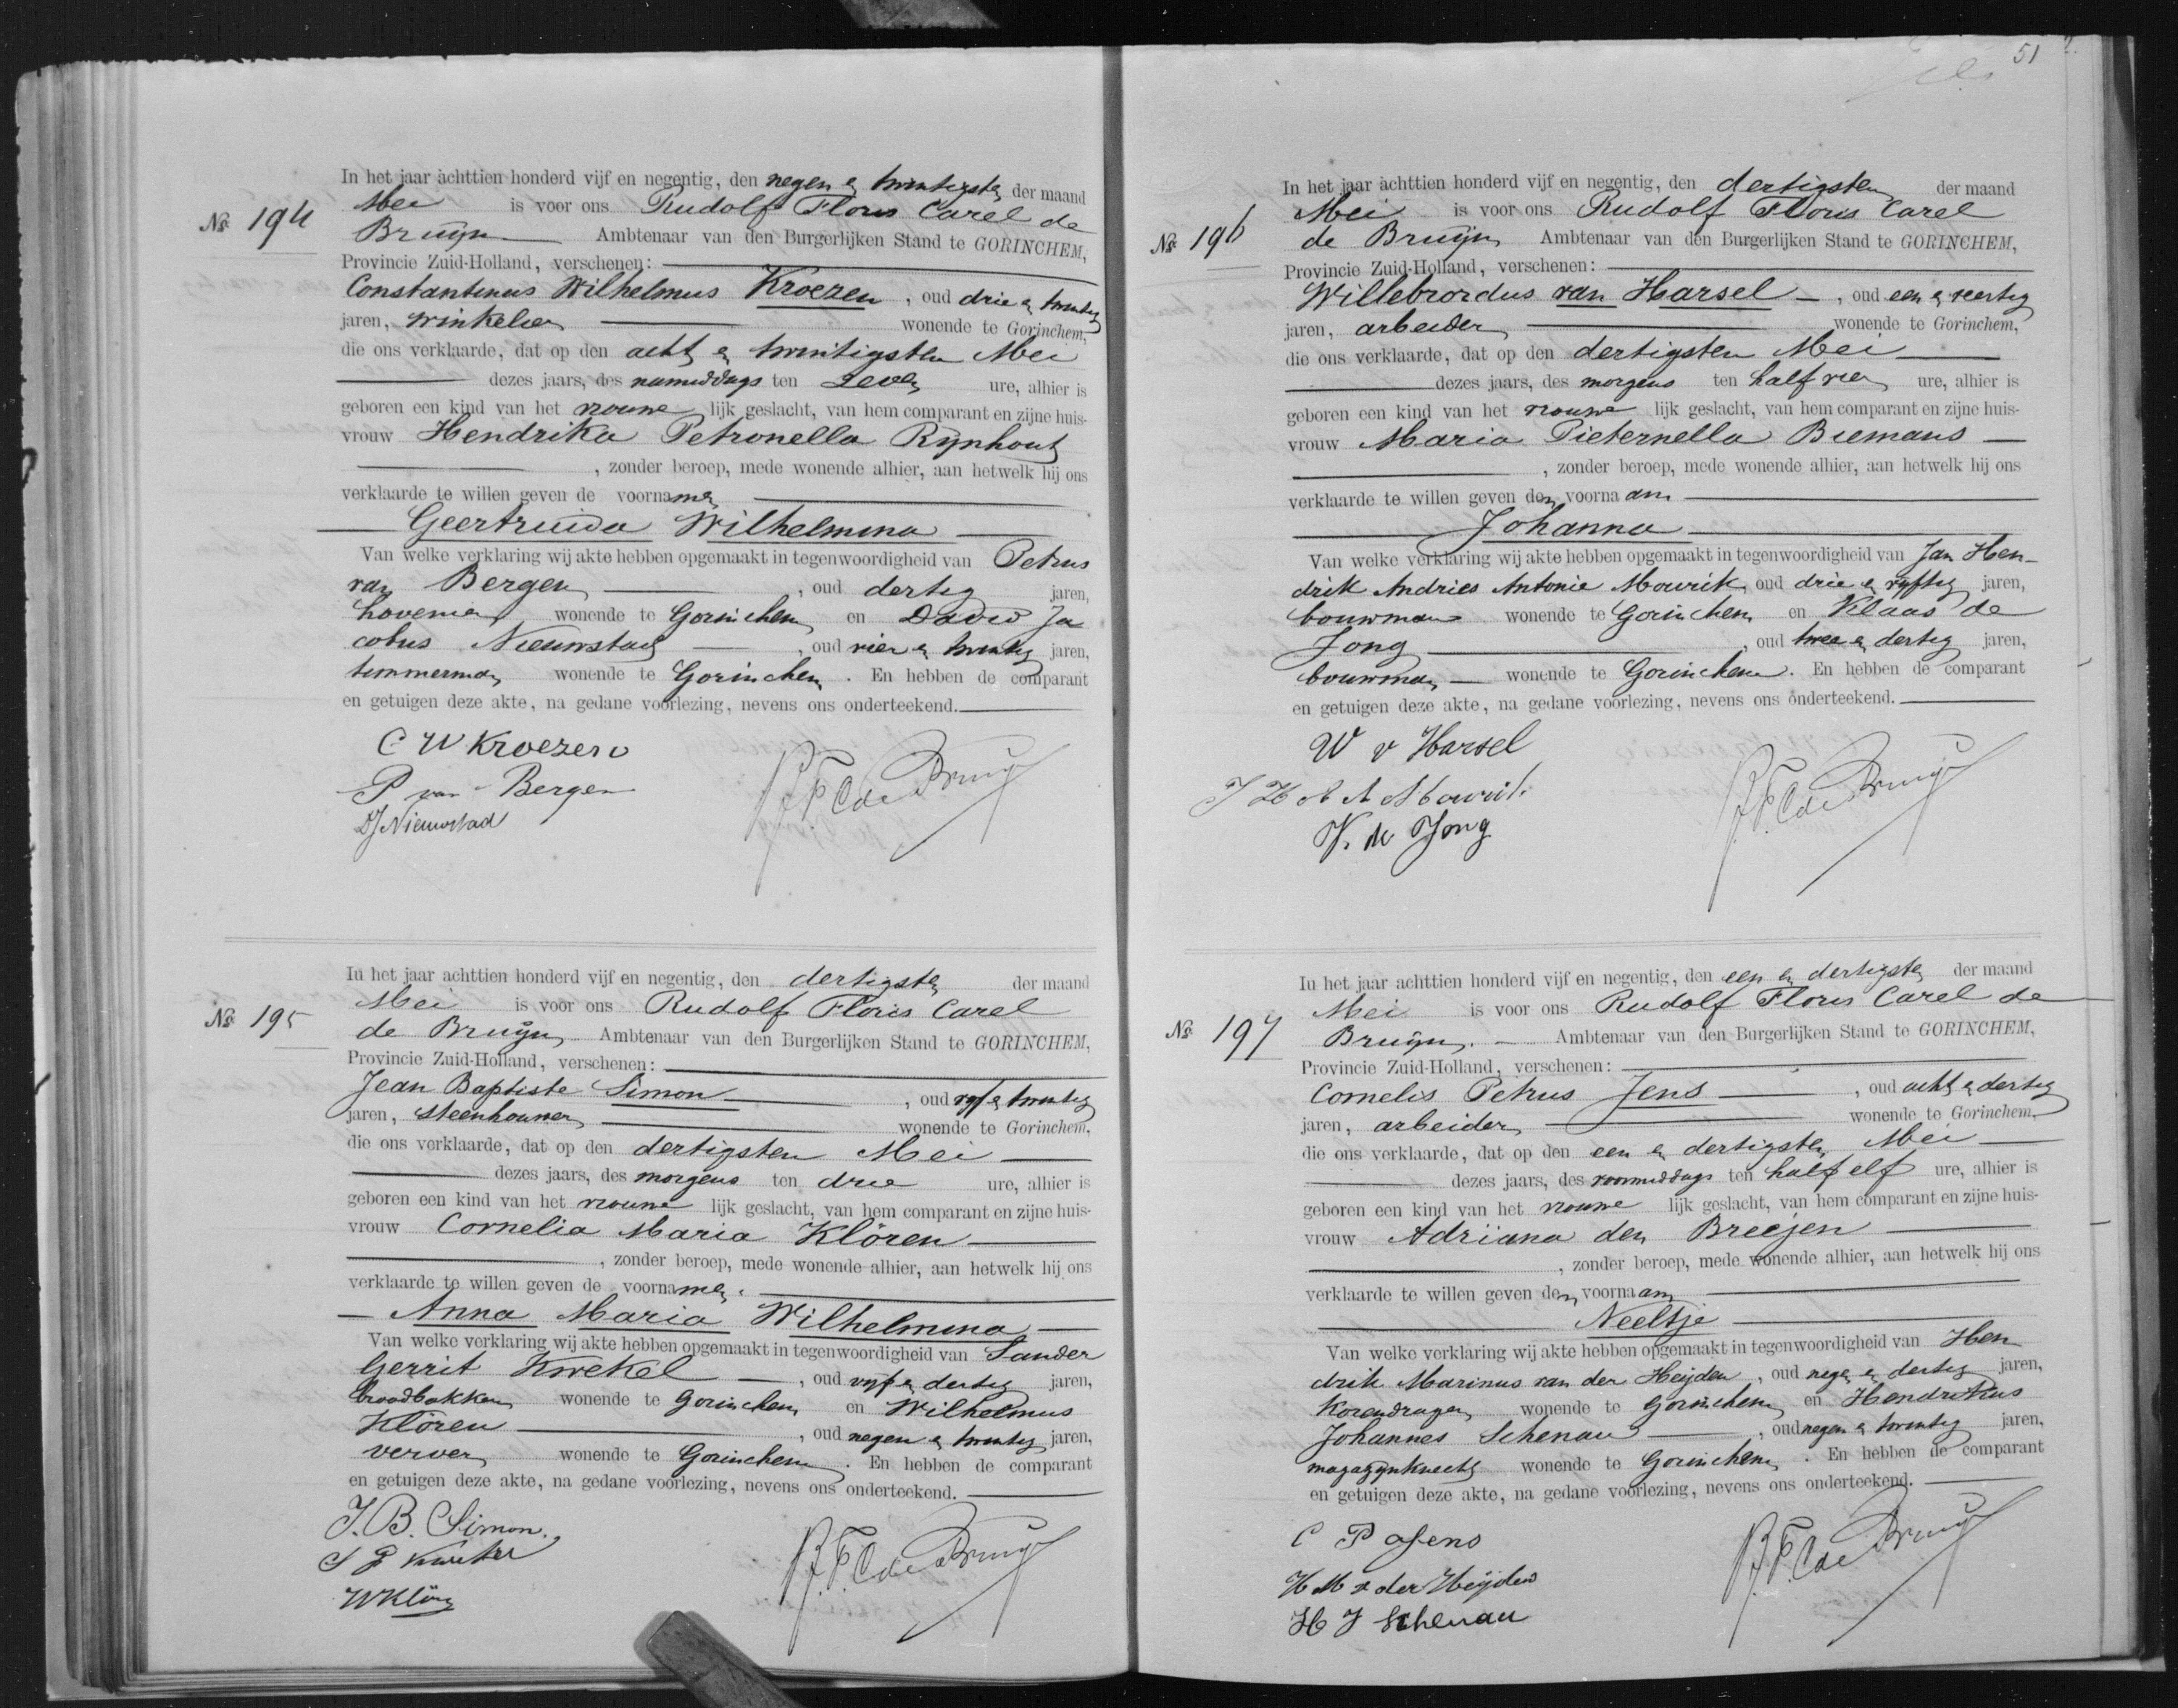 In het jaar achttien honderd vijf en negentig, den negen en twintigsten der maand
Mei is voor ons Rudolf Floris Carel de
No 194
Bruijn Ambtenaar van den Burgerlijken Stand te GORINCHEM,
Provincie Zuid-Holland, verschenen:
Constantinus Wilhelmus Kroezen, oud drie en twintig
jaren, winkelier wonende te Gorinchem,
die ons verklaarde, dat op den acht en twintigsten Mei
dezes jaars, des namiddags ten zeven ure, alhier is
geboren een kind van het vrouwelijk geslacht, van hem comparant en zijne huis-
vrouw Hendrika Petronella Rijnhout
, zonder beroep, mede wonende alhier, aan hetwelk hij ons
verklaarde te willen geven de voornamen
Geertruida Wilhelmina
Van welke verklaring wij akte hebben opgemaakt in tegenwoordigheid van Petrus
van Bergen, oud dertig jaren,
hovenier wonende te Gorinchem en David Ja
cobus Nieuwstad, oud vier en twintig jaren,
timmerman wonende te Gorinchem. En hebben de comparant
en getuigen deze akte, na gedane voorlezing, nevens ons onderteekend.
C W Kroezen
P van Bergen
DJ Nieuwstad
R.F.C. de Bruijn
In het jaar achttien honderd vijf en negentig, den dertigsten der maand
Mei is voor ons Rudolf Floris Carel
No 195
de Bruijn Ambtenaar van den Burgerlijken Stand te GORINCHEM,
Provincie Zuid-Holland, verschenen:
Jean Baptiste Simon, oud vijf en twintig
jaren, steenhouwer wonende te Gorinchem,
die ons verklaarde, dat op den dertigsten Mei
dezes jaars, des morgens ten drie ure, alhier is
geboren een kind van het vrouwelijk geslacht, van hem comparant en zijne huis-
vrouw Cornelia Maria Klören
, zonder beroep, mede wonende alhier, aan hetwelk hij ons
verklaarde te willen geven de voornamen.
Anna Maria Wilhelmina
Van welke verklaring wij akte hebben opgemaakt in tegenwoordigheid van Sander
Gerrit Kwekel, oud vijf en dertig jaren,
broodbakker wonende te Gorinchem en Wilhelmus
Klören, oud negen en twintig jaren,
verver wonende te Gorinchem. En hebben de comparant
en getuigen deze akte, na gedane voorlezing, nevens ons onderteekend.
J.B. Simon.
S G Kwekel
W Klören
R.F.C. de Bruijn
51
In het jaar achttien honderd vijf en negentig, den dertigsten der maand
Mei is voor ons Rudolf Floris Carel
No 196
de Bruijn Ambtenaar van den Burgerlijken Stand te GORINCHEM,
Provincie Zuid-Holland, verschenen:
Willebrordus van Harsel, oud een en veertig
jaren, arbeider wonende te Gorinchem,
die ons verklaarde, dat op den dertigsten Mei
dezes jaars, des morgens ten half vier ure, alhier is
geboren een kind van het vrouwelijk geslacht, van hem comparant en zijne huis-
vrouw Maria Pieternella Biemans
, zonder beroep, mede wonende alhier, aan hetwelk hij ons
verklaarde te willen geven den voornaam
Johanna
Van welke verklaring wij akte hebben opgemaakt in tegenwoordigheid van Jan Hen-
drik Andries Antonie Mourik, oud drie en vijftig jaren,
bouwman wonende te Gorinchem en Klaas de
Jong, oud twee en dertig jaren,
bouwman wonende te Gorinchem. En hebben de comparant
en getuigen deze akte, na gedane voorlezing, nevens ons onderteekend.
W v Harsel
J H A A Mourik
K. de Jong
R.F.C. de Bruijn
In het jaar achttien honderd vijf en negentig, den een en dertigsten der maand
Mei is voor ons Rudolf Floris Carel de
No 197
Bruijn. Ambtenaar van den Burgerlijken Stand te GORINCHEM,
Provincie Zuid-Holland, verschenen:
Cornelis Petrus Jens, oud acht en dertig
jaren, arbeider wonende te Gorinchem,
die ons verklaarde, dat op den een en dertigsten Mei
dezes jaars, des voormiddags ten half elf ure, alhier is
geboren een kind van het vrouwelijk geslacht, van hem comparant en zijne huis-
vrouw Adriana den Breejen
, zonder beroep, mede wonende alhier, aan hetwelk hij ons
verklaarde te willen geven den voornaam
Neeltje
Van welke verklaring wij akte hebben opgemaakt in tegenwoordigheid van Hen
drik Marinus van der Heijden, oud negen en dertig jaren,
korendrager wonende te Gorinchem en Hendrikus
Johannes Schenau, oud negen en twintig jaren,
magazijnknecht wonende te Gorinchem. En hebben de comparant
en getuigen deze akte, na gedane voorlezing, nevens ons onderteekend.
C P Jens
H M v der Heijden
H J Schenau
R.F.C. de Bruijn